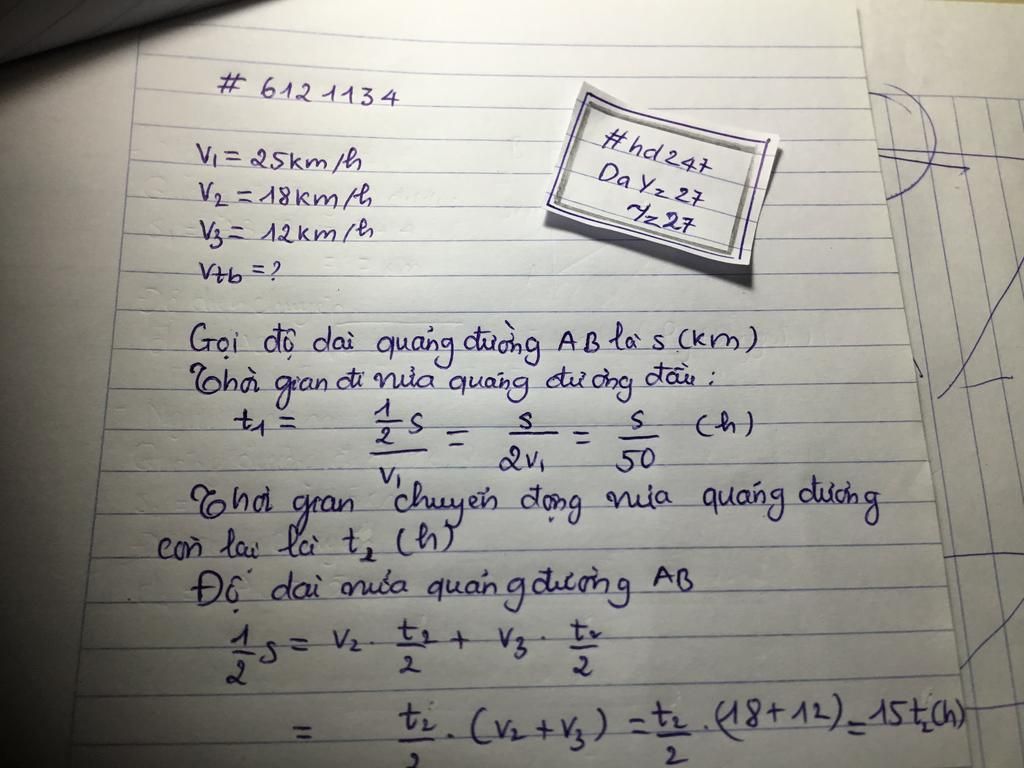 # 6121134
#hd247
Day_z 27
V₁ = 25km/h
V₂ = 18km/h
V₃ = 12km/h
Vtb = ?
Gọi độ dài quảng đường AB là s (km)
Thời gian đi nửa quảng đường đầu :
t₁ = (1/2 s)/V₁ = s/2V₁ = s/50 (h)
Thời gian chuyển động nửa quảng đường
còn lại là t₂ (h)
Độ dài nửa quảng đường AB
1/2 s = V₂ · t₂/2 + V₃ · t₂/2
= t₂/2 · (V₂ + V₃) = t₂/2 · (18 + 12) = 15t₂(h)